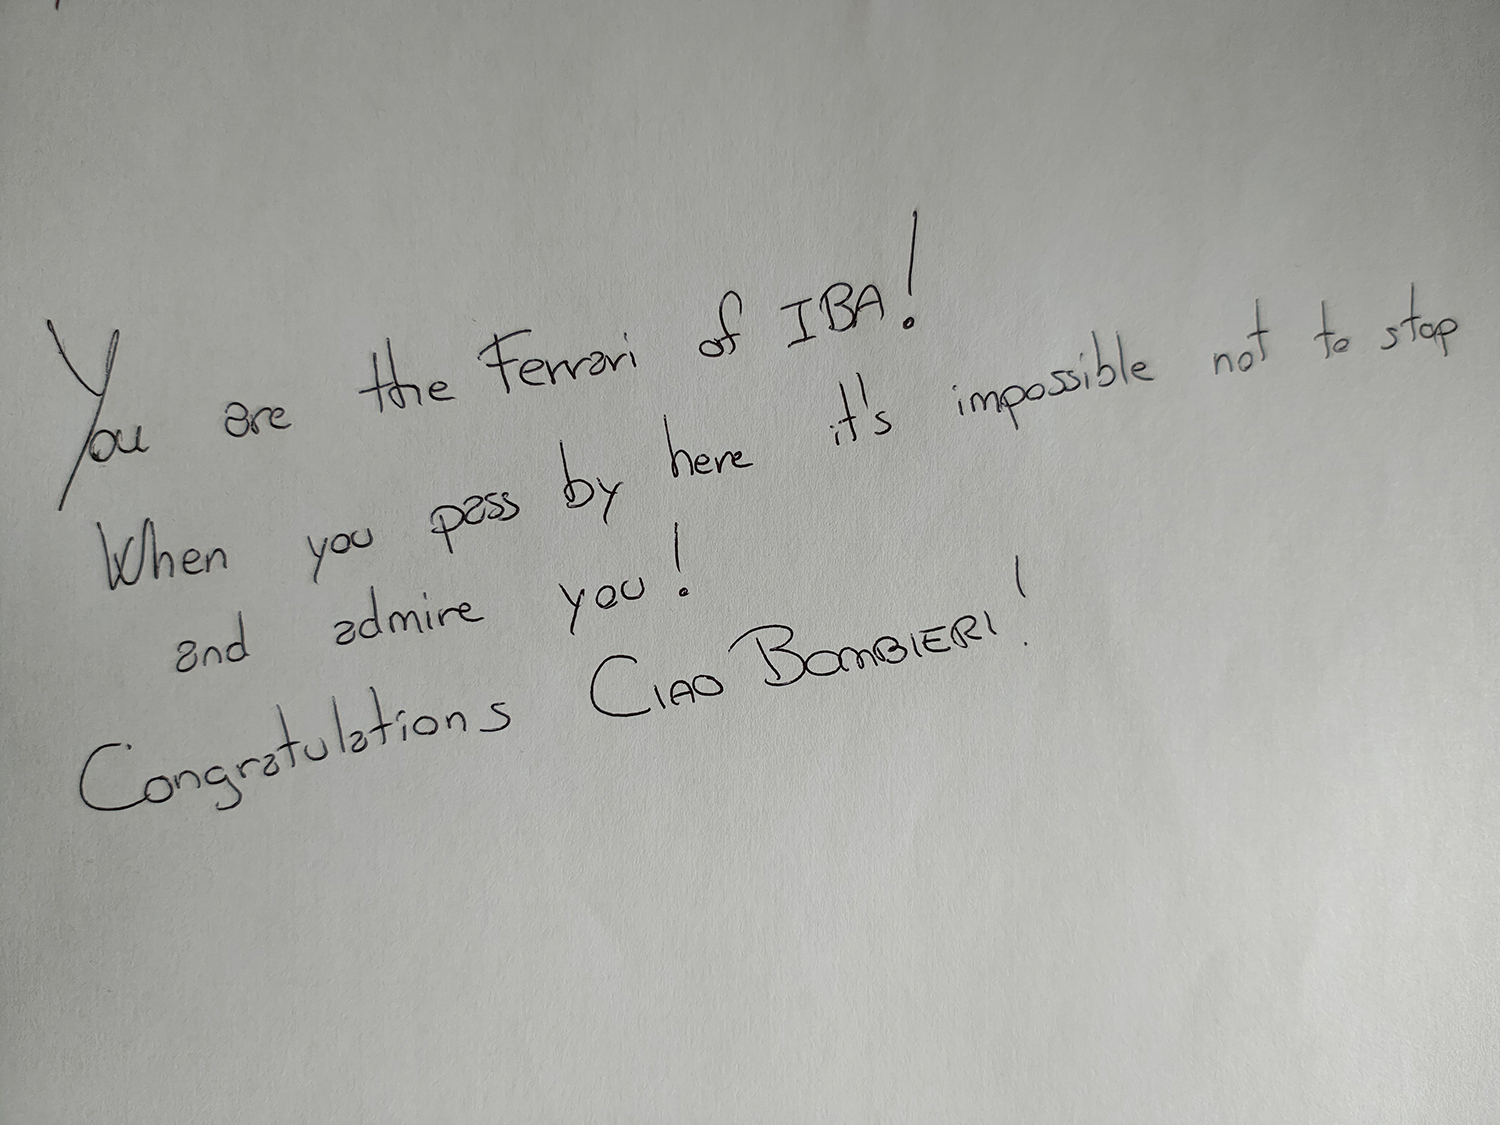 You are the Ferrari of IBA!
When you pass by here it's impossible not to stop
and admire you!
Congratulations CIAO BOMBIERI!